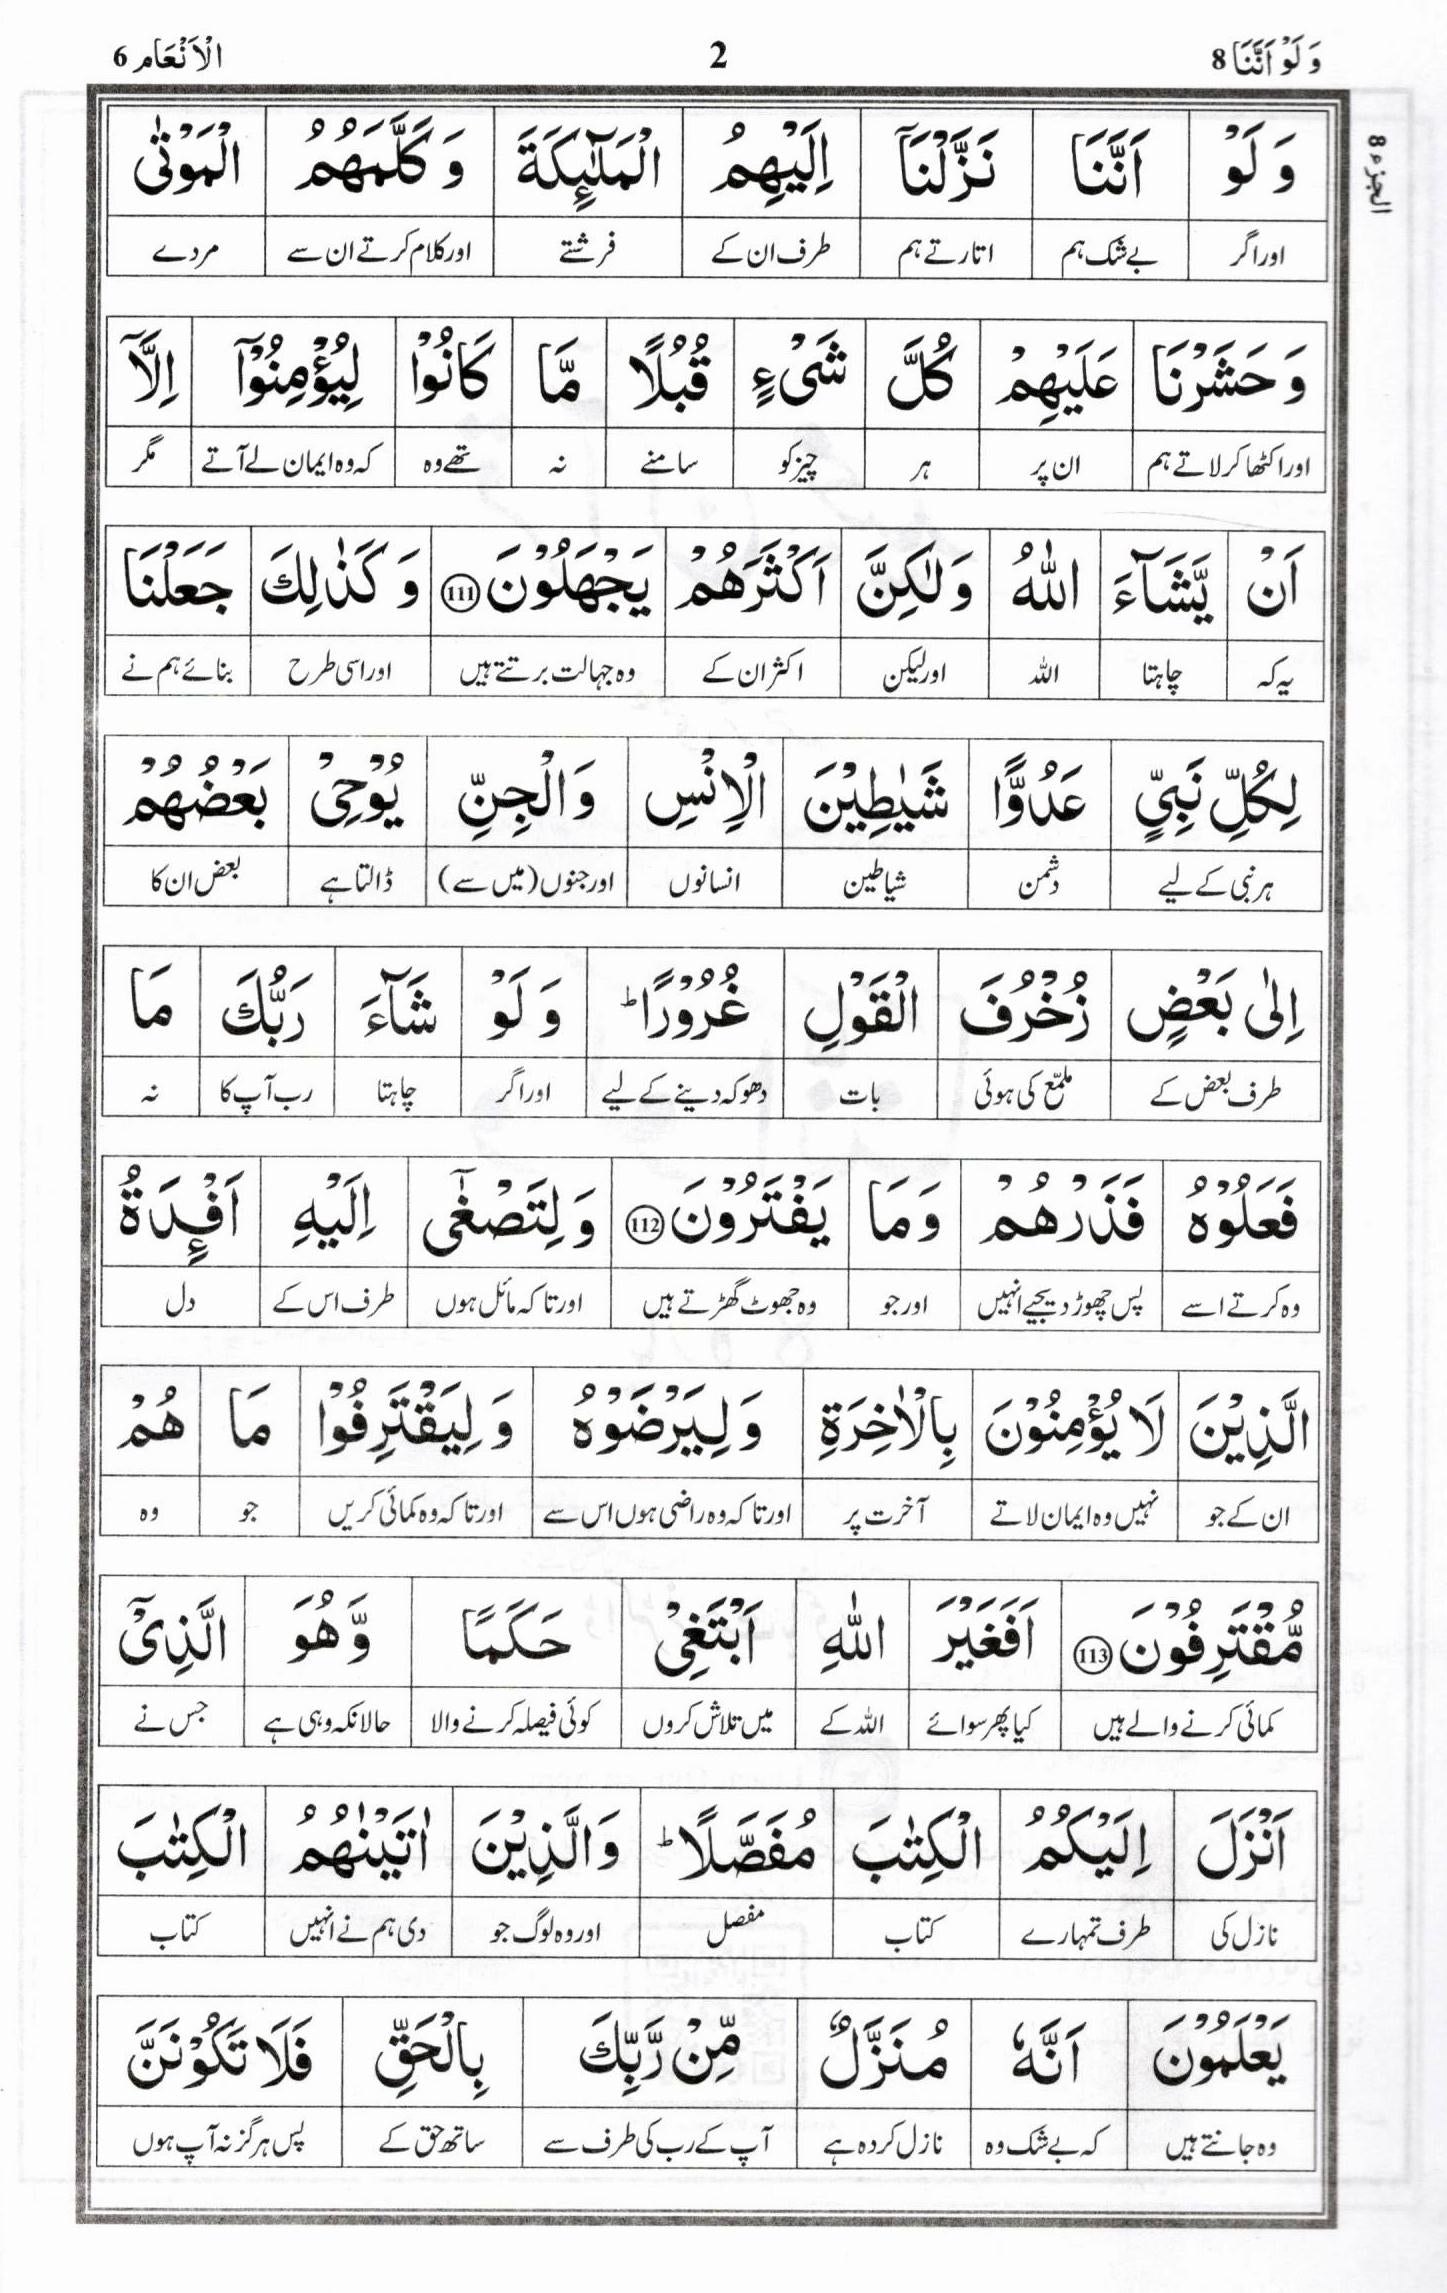 وَ لَوْ اَنَّنَا 8 2 الْاَنْعَام 6
الجزء 8
وَ لَوْ اَنَّنَا نَزَّلْنَاۤ اِلَيْهِمُ الْمَلٰٓئِكَةَ وَ كَلَّمَهُمُ الْمَوْتٰى
اور اگر بے شک ہم اتارتے ہم طرف ان کے فرشتے اور کلام کرتے ان سے مردے
وَ حَشَرْنَا عَلَيْهِمْ كُلَّ شَىْءٍ قُبُلًا مَّا كَانُوْا لِيُؤْمِنُوْۤا اِلَّاۤ
اور اکٹھا کر لاتے ہم ان پر ہر چیز کو سامنے نہ تھے وہ کہ وہ ایمان لے آتے مگر
اَنْ يَّشَآءَ اللّٰهُ وَ لٰكِنَّ اَكْثَرَهُمْ يَجْهَلُوْنَ 111 وَ كَذٰلِكَ جَعَلْنَا
یہ کہ چاہتا اللہ اور لیکن اکثر ان کے وہ جہالت برتتے ہیں اور اسی طرح بنائے ہم نے
لِكُلِّ نَبِىٍّ عَدُوًّا شَيٰطِيْنَ الْاِنْسِ وَ الْجِنِّ يُوْحِىْ بَعْضُهُمْ
ہر نبی کے لیے دشمن شیاطین انسانوں اور جنوں (میں سے) ڈالتا ہے بعض ان کا
اِلٰى بَعْضٍ زُخْرُفَ الْقَوْلِ غُرُوْرًا ؕ وَ لَوْ شَآءَ رَبُّكَ مَا
طرف بعض کے ملمّع کی ہوئی بات دھوکہ دینے کے لیے اور اگر چاہتا رب آپ کا نہ
فَعَلُوْهُ فَذَرْهُمْ وَ مَا يَفْتَرُوْنَ 112 وَ لِتَصْغٰۤى اِلَيْهِ اَفْئِدَةُ
وہ کرتے اسے پس چھوڑ دیجیے انہیں اور جو وہ جھوٹ گھڑتے ہیں اور تاکہ مائل ہوں طرف اس کے دل
الَّذِيْنَ لَا يُؤْمِنُوْنَ بِالْاٰخِرَةِ وَ لِيَرْضَوْهُ وَ لِيَقْتَرِفُوْا مَا هُمْ
ان کے جو نہیں وہ ایمان لاتے آخرت پر اور تاکہ وہ راضی ہوں اس سے اور تاکہ وہ کمائی کریں جو وہ
مُّقْتَرِفُوْنَ 113 اَفَغَيْرَ اللّٰهِ اَبْتَغِىْ حَكَمًا وَّ هُوَ الَّذِىْۤ
کمائی کرنے والے ہیں کیا پھر سوائے اللہ کے میں تلاش کروں کوئی فیصلہ کرنے والا حالانکہ وہی ہے جس نے
اَنْزَلَ اِلَيْكُمُ الْكِتٰبَ مُفَصَّلًا ؕ وَ الَّذِيْنَ اٰتَيْنٰهُمُ الْكِتٰبَ
نازل کی طرف تمہارے کتاب مفصل اور وہ لوگ جو دی ہم نے انہیں کتاب
يَعْلَمُوْنَ اَنَّهٗ مُنَزَّلٌ مِّنْ رَّبِّكَ بِالْحَقِّ فَلَا تَكُوْنَنَّ
وہ جانتے ہیں کہ بے شک وہ نازل کردہ ہے آپ کے رب کی طرف سے ساتھ حق کے پس ہرگز نہ آپ ہوں